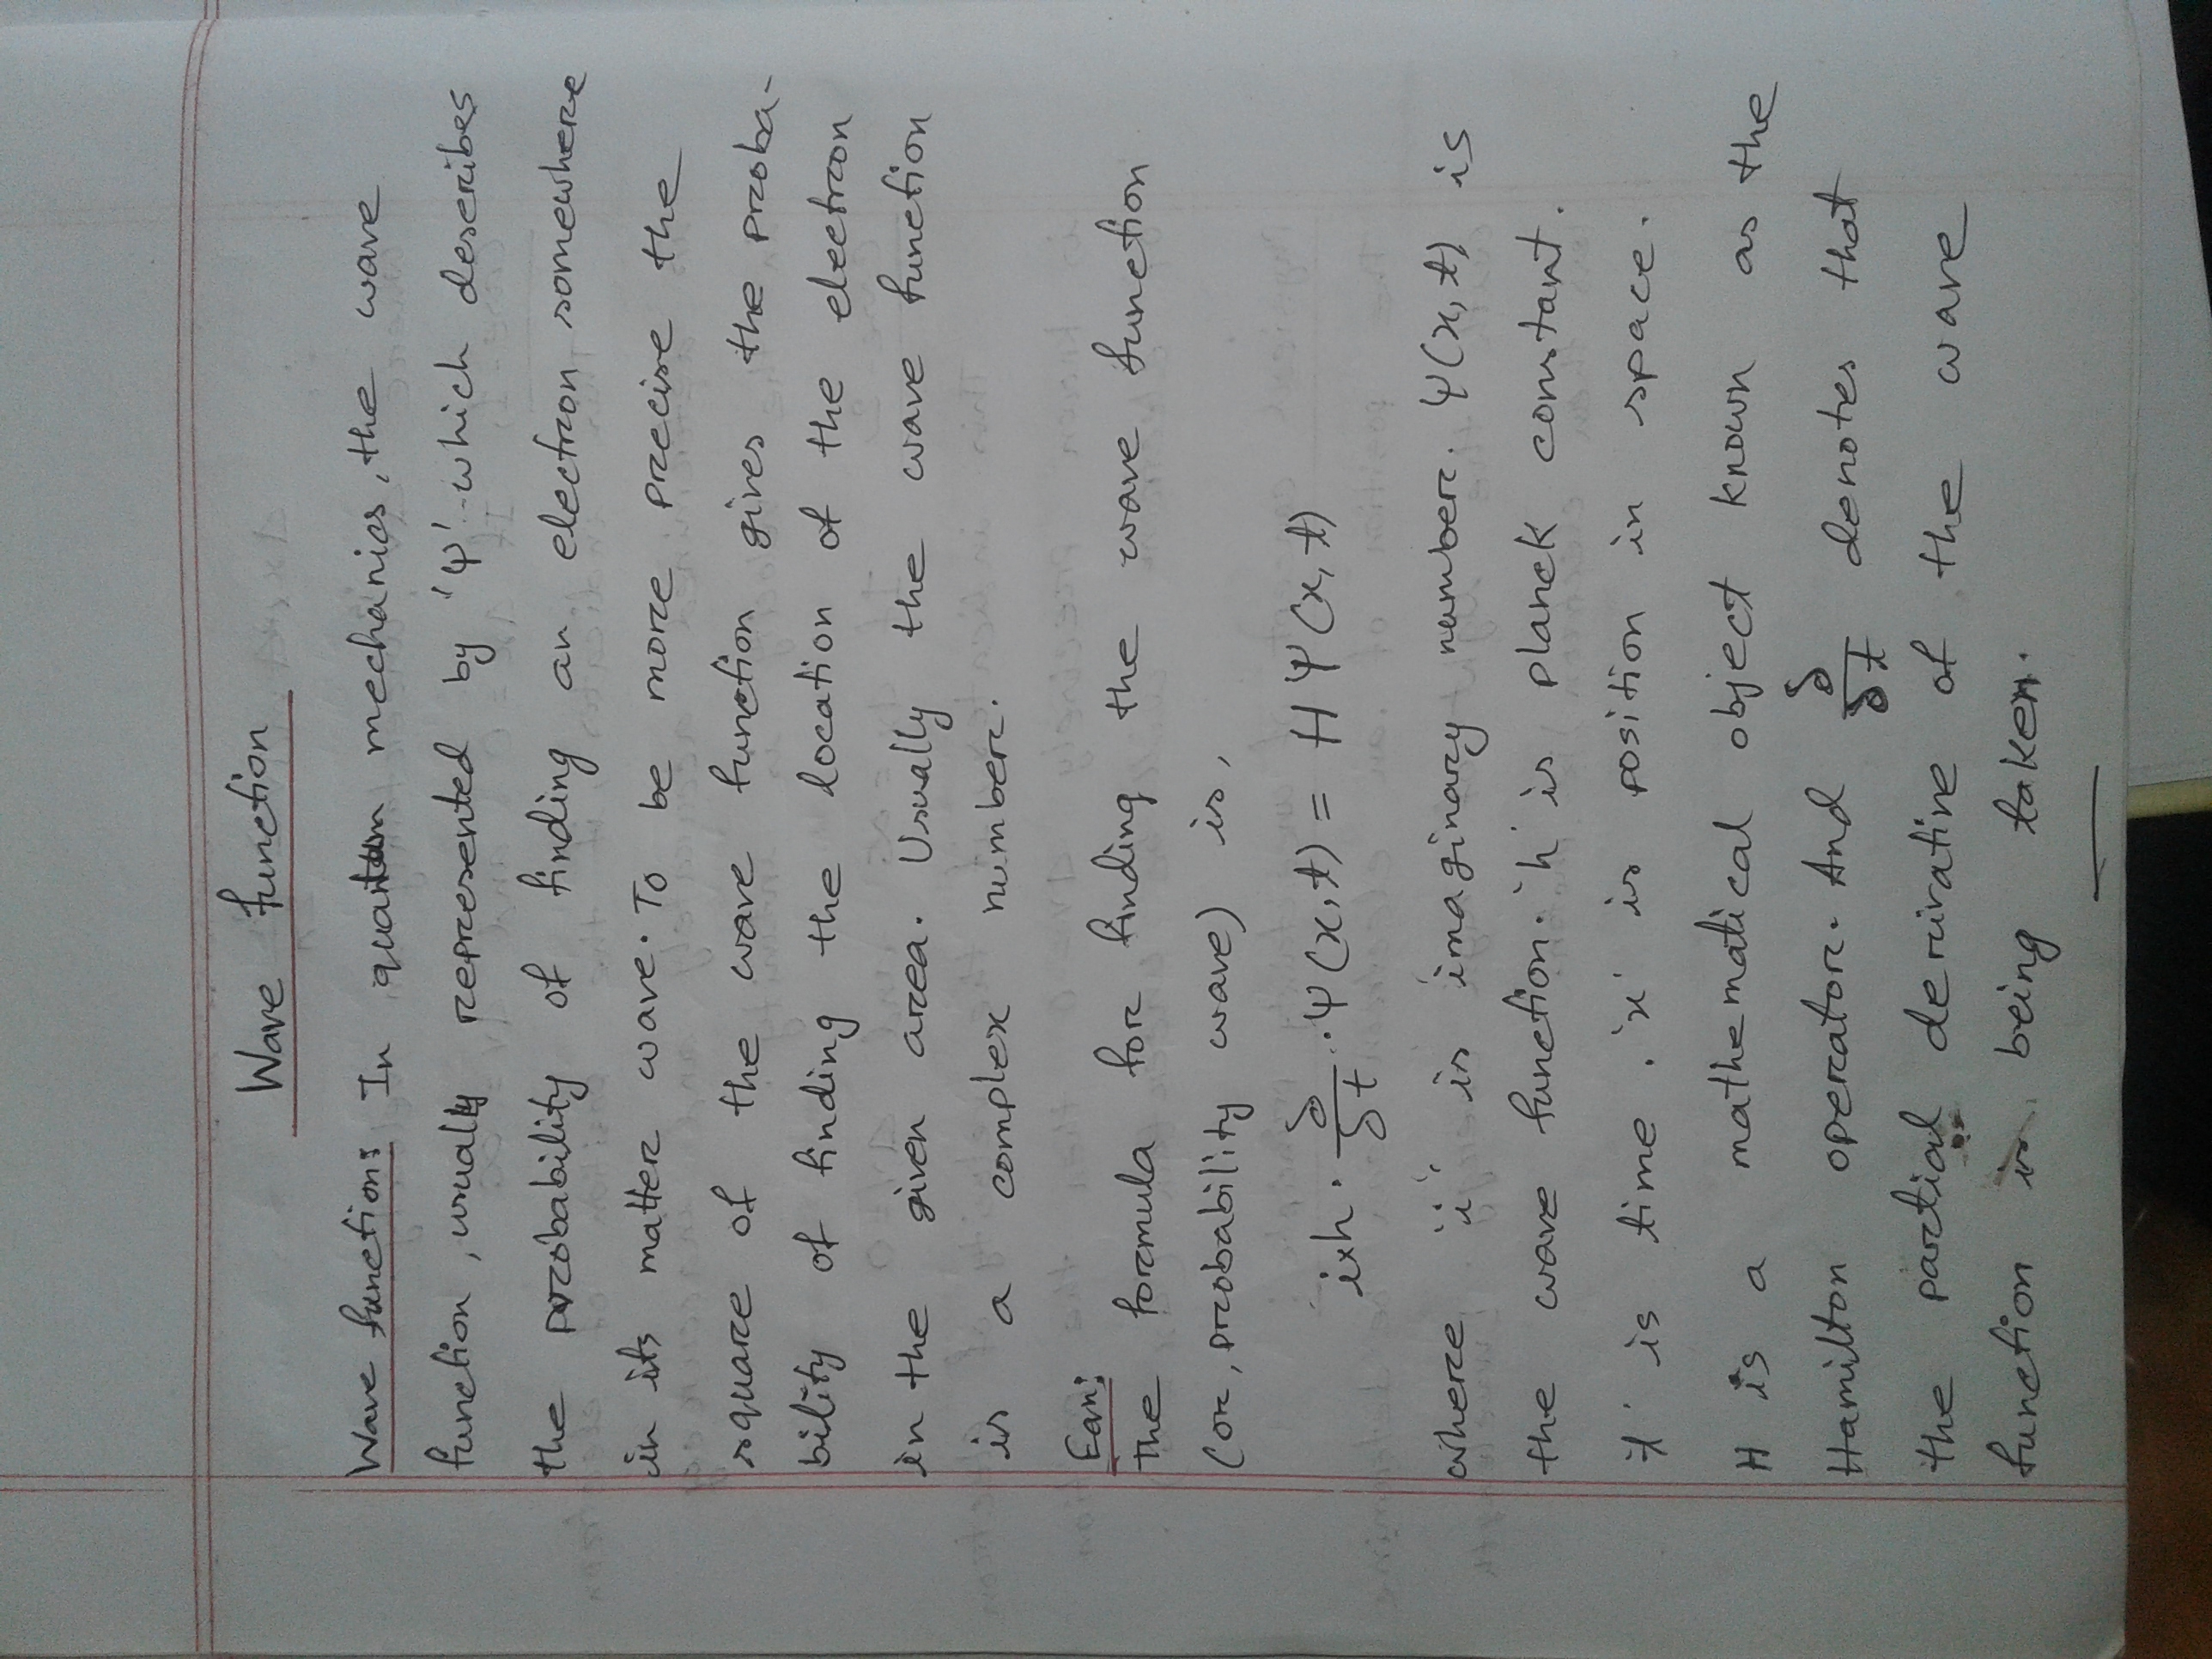 Wave function
Wave function: In quantum mechanics, the wave
function, usually represented by 'Ψ' which describes
the probability of finding an electron somewhere
in its matter wave. To be more precise the
square of the wave function gives the proba-
bility of finding the location of the electron
in the given area. Usually the wave function
is a complex number.
Eqn:
The formula for finding the wave function
(or, probability wave) is,
i×h · δ/δt · Ψ(x,t) = HΨ(x,t)
where 'i' is imaginary number. Ψ(x,t) is
the wave function. 'h' is planck constant.
't' is time. 'x' is position in space.
H is a mathematical object known as the
Hamilton operator. And δ/δt denotes that
the partial derivative of the wave
function is being taken.